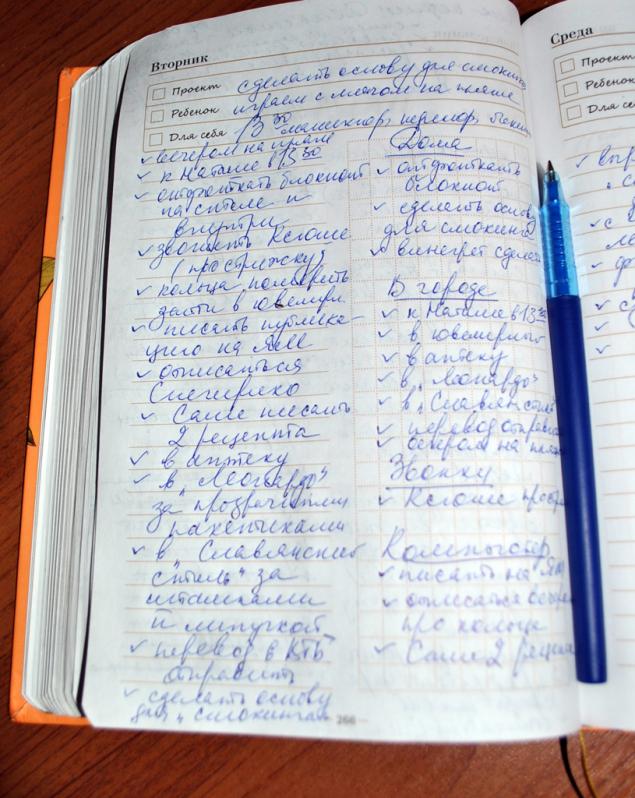 Вторник
Проект сделать основу для смокинга
Ребенок играем с мячом на пляже
Для себя 13 30 маникюр,
вечером на пляж
к Наташе в 13 30
отдфоткать блокнот
на столе и
внутри
звонить Ксюше
(про стрижку)
кольца померить
зайти в ювелирн.
писать публика-
цию на ЯММ
отписаться
Саше писать
2 рецепта
в аптеку
в „Леонардо"
за прозрачными
пакетиками
в „Славянский
стиль" за
штанишками
и липучкой
перевод в ВТБ
отправить
сделать основу
для „смокинга"
266
Дома
отфоткать
блокнот
сделать основу
для смокинга
винегрет сделать
В городе
к Наташе в 13 30
в ювелирный
в аптеку
в „Леонардо"
в „Славян. стиль"
перевод отправить
вечером на пляж
Звонки
Ксюше про стри
Компьютер
писать на ЯМ
отписаться
про кольца
Саше 2 рецепта
Среда
Проект
Ребенок
Для се